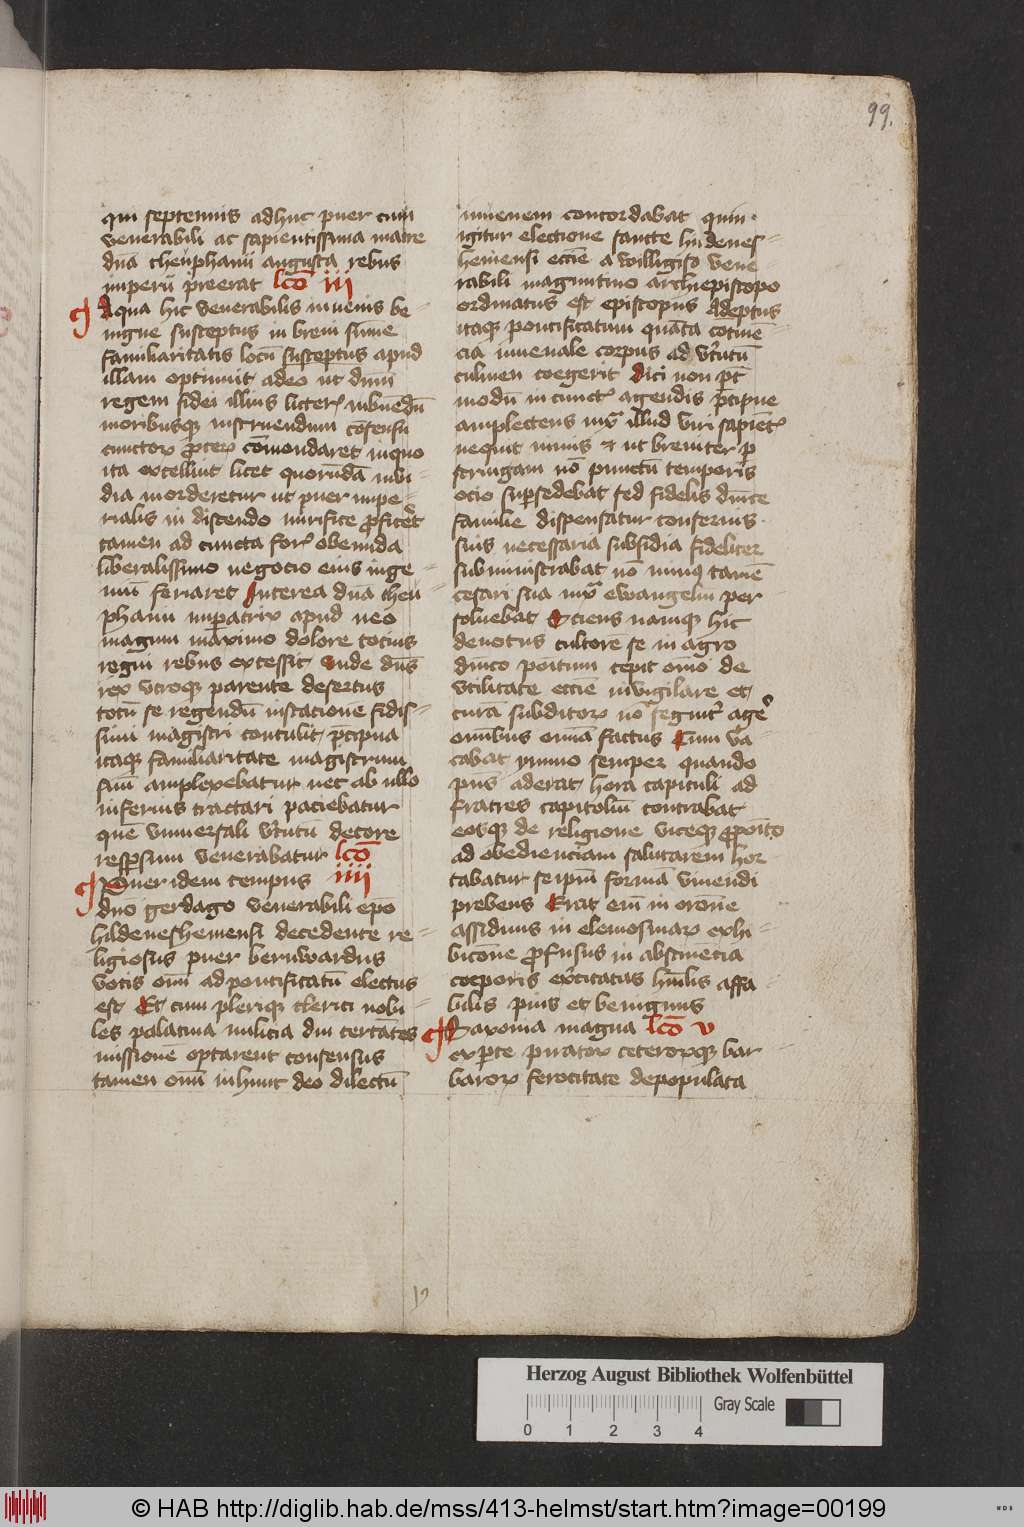 99.
qui septennis adhuc puer cum
venerabili ac sapientissima matre
dña theuphanu augusta rebus
imperii preerat lcō iii
A qua hic venerabilis iuuenis be
nigne susceptus in breui sume
familiaritatis locū susceptus apud
illam optinuit adeo ut dnm̄
regem fidei illius litter imbuedū
moribusque instruendum cōsensu
cunctor procer cōmendaret inquo
ita excelluit licet quorūdā inui
dia morderetur ut puer impe-
rialis in discendo mirifice proficeret
tamen ad cuncta for obeunda
liberalissimo negocio eius inge
niū feriaret Interea dña theu-
phanu imperatrix apud neo
magum maximo dolore tocius
regni rebus excessit vnde dns̄
rex vtroque parente desertus
totū se regendū instacione fidis-
simi magistri contulit precipua
itaque familiaritate magistrum
suū amplexebatur nec ab illo
inferius tractari paciebatur
quē vniuersali v̓tutū decore
respersum venerabatur lcō
iiii
Per idem tempus
dn̄o gerdago venerabili ep̄o
hildeneshemensi decedente re-
ligiosus puer bernwardus
votis om̄i ad pontificatū electus
est Et cum plerique clerici nobi-
les palatina milicia diu certātes
missionē optarent consensus
tamen om̄i in hunc deo dilectū
iuuenem concordabat quin
igitur electione sancte hildenes-
hemensi eccīe a willigiso vene-
rabili maguntino archiepiscopo
ordinatus est episcopus Adeptus
itaque pontificatum quāta cōtinē-
cia iuuenale corpus ad v̓tutū
culmen coegerit dici non pt̄
modū in cunct agendis precipue
amplectens iux illud viri sapient
nequit nimis et ut breuiter per
stringam nō punctū temporis
ocio supersedebat sed fidelis dnīce
familie dispensatur conseruis
suis necessaria subsidia fideliter
subministrabat nō nunq tamē
cesari sua iux ewangeliū per
soluebat Sciens namque hic
deuotus cultore se in agro
dnīco positum cepit om̄o de
vtilitate eccīe inuigilare et
curā subditor nō segniter agere
omnibus omnia factus Cum va-
cabat ymmo semper quando
pius aderat hora capituli ad
fratres capitoliū contrabat
eosque de religione viceque proposito
ad obedienciam salutarem hor
tabatur seipm̄ formā viuendi
prebens Erat em̄ in oroñe
assiduus in elemosinar exhi-
bicōne profusus in abstinencia
corporis exercitatus hmīlis affa-
bilis pius et benignus
Saxonia magna lcō v
ex parte piratar ceterorque bar-
baror ferocitate depopulata
Herzog August Bibliothek Wolfenbüttel
Gray Scale
0 1 2 3 4
© HAB http://diglib.hab.de/mss/413-helmst/start.htm?image=00199